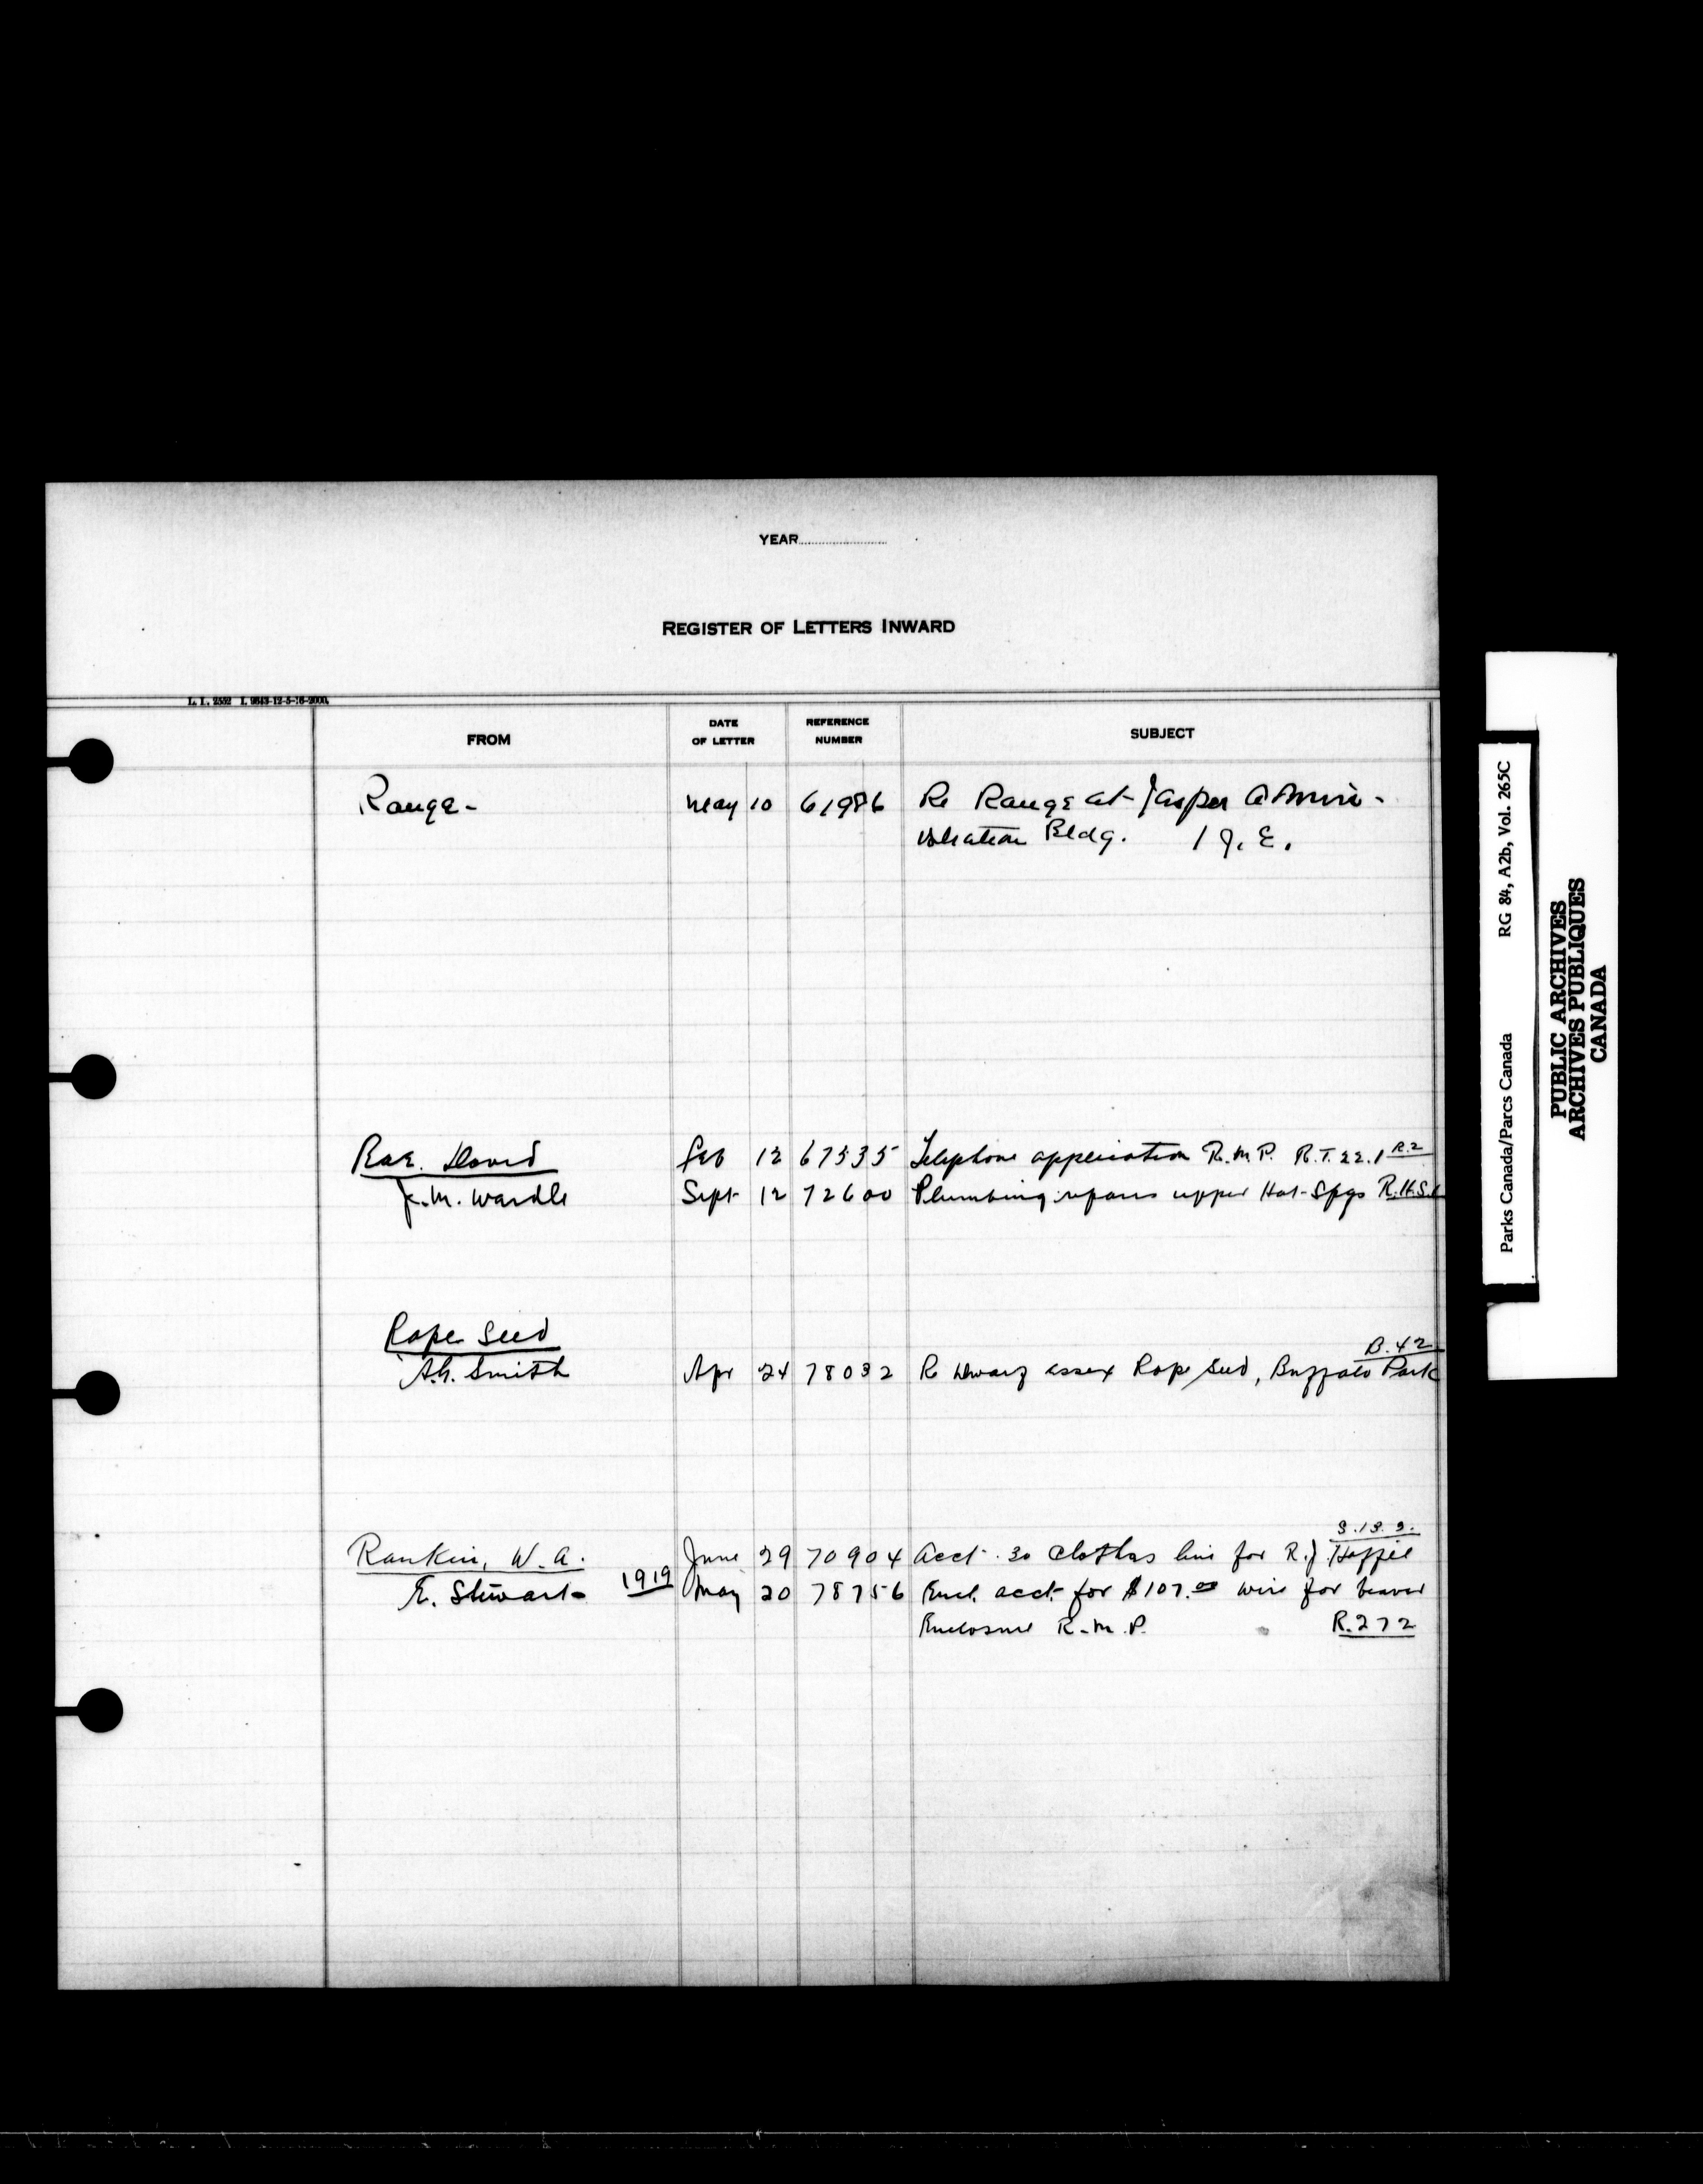 YEAR
REGISTER OF LETTERS INWARD
L. I. 2552 I. 9643-12-5-16-2000.
FROM DATE OF LETTER REFERENCE NUMBER SUBJECT
Range - May 10 61986 Re Range at Jasper Admini-
stration Bldg. 1 J. E.
Rae. David Feb 12 67535 Telephone application R.M.P. R.T. 22.1 R.2
J.M. Wardle Sept 12 72600 Plumbing repairs upper Hot Spgs R.H.S.1
Rape Seed
B.42
A.G. Smith Apr 24 78032 Re Dwarf Essex Rape Seed, Buffalo Park
Rankin, W. A. June 29 70904 Acct. 30 Clothes line for R.J.
E. Stewart 1919 May 20 78756 Encl. acct. for $107.00 wire for beaver
Enclosure R.M.P. R.272
RG 84, A2b, Vol. 265C
Parks Canada/Parcs Canada
PUBLIC ARCHIVES
ARCHIVES PUBLIQUES
CANADA